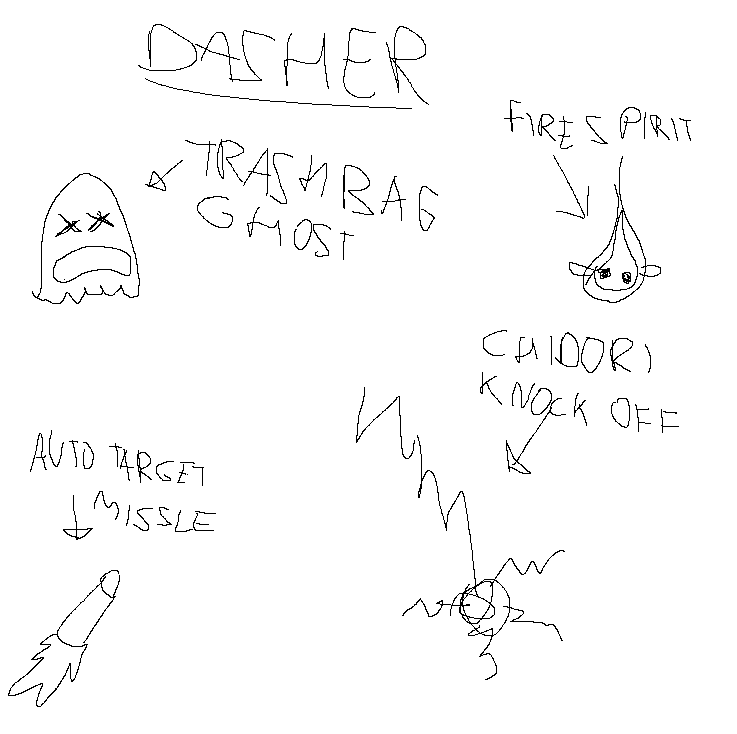 DASHER
TRASH BAG
GHOST
FIRE SPIRIT
CHIDORI
KNOCK OFF
AUTO TARGET
MISSLE